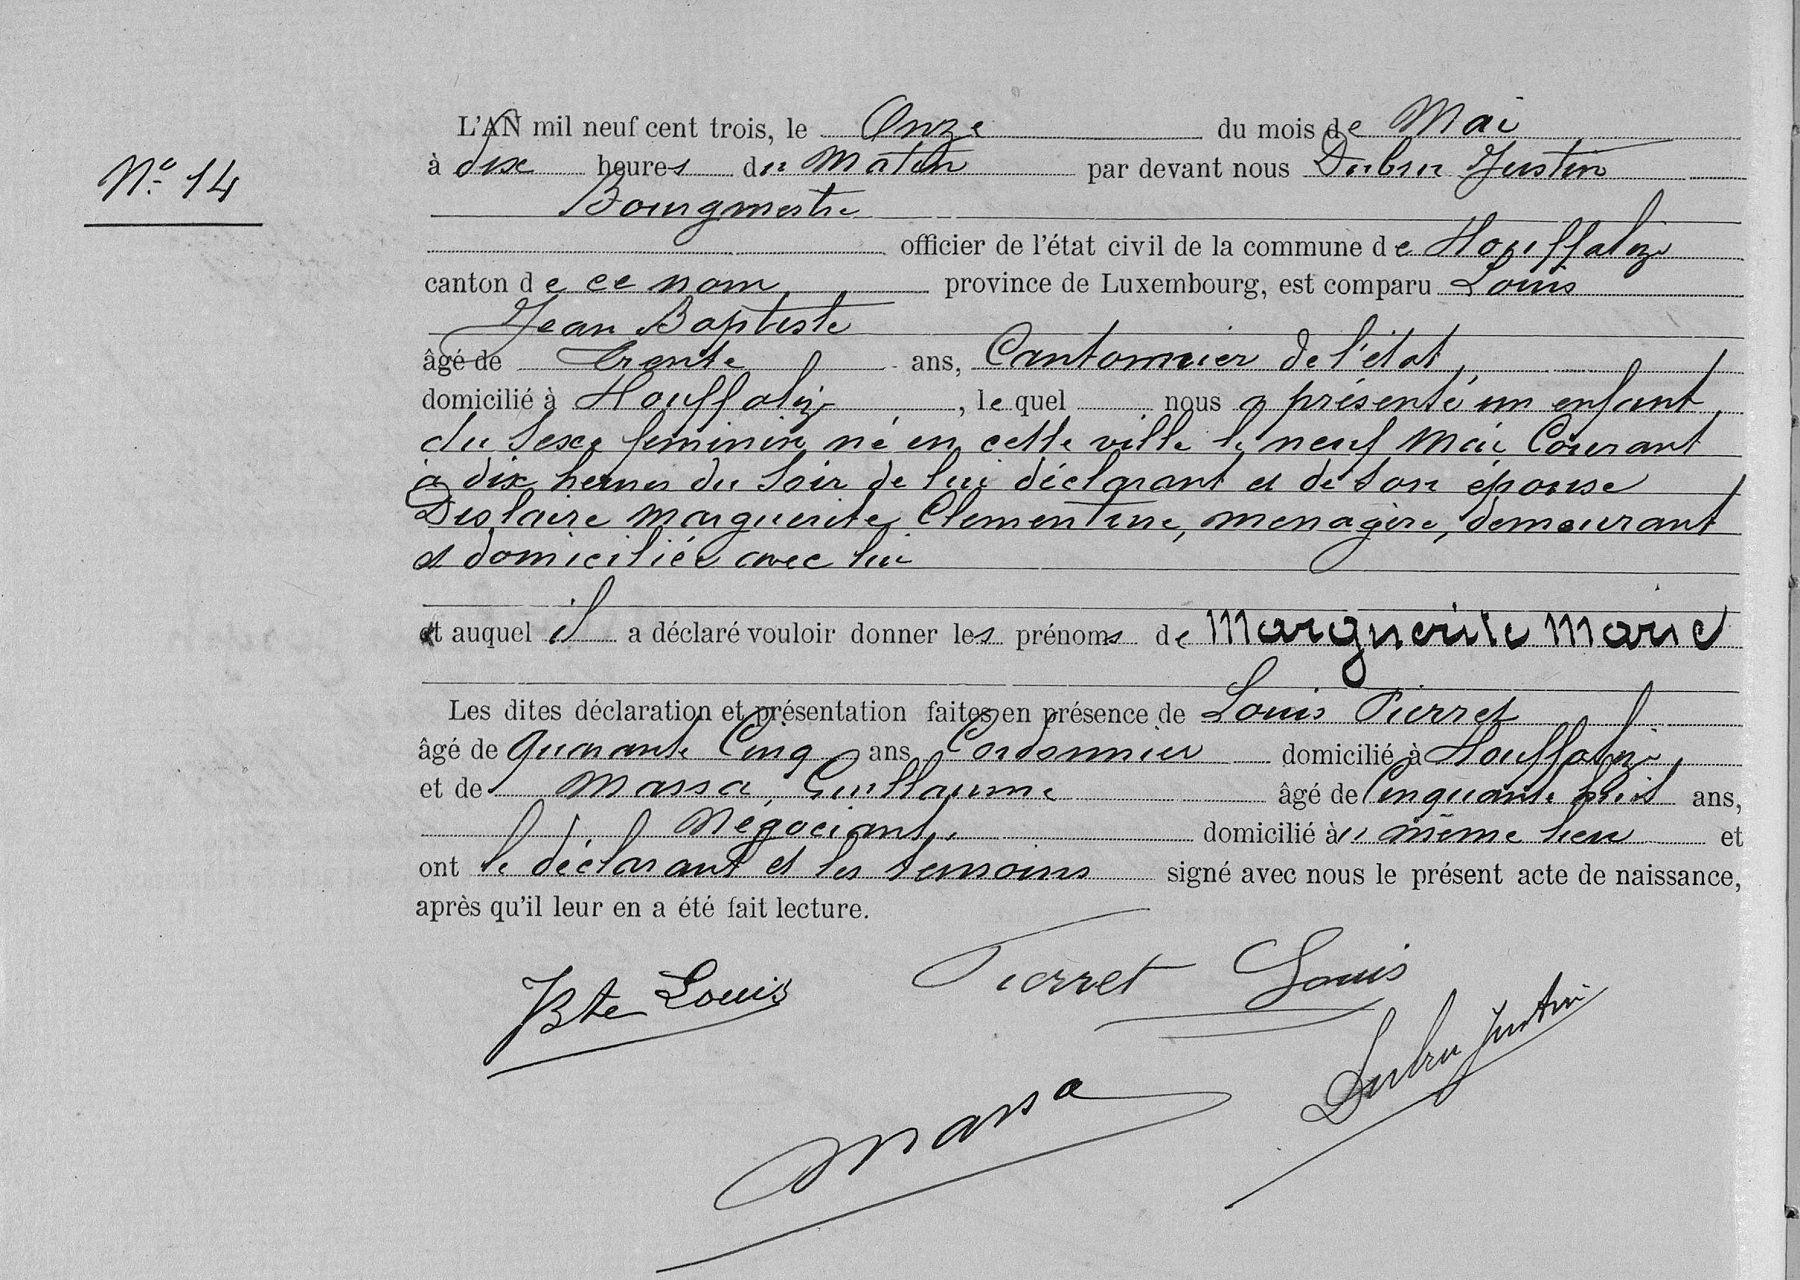 L'AN mil neuf cent trois, le Onze du mois de Mai
N° 14
à dix heures du Matin par devant nous Dubru Justin
Bourgmestre
officier de l'état civil de la commune de Houffalize
canton de ce nom province de Luxembourg, est comparu Louis
Jean Baptiste
âgé de trente ans, Cantonnier de l'état,
domicilié à Houffalize, lequel nous a présenté un enfant
du sexe féminin né en cette ville le neuf Mai Courant
à dix heures du soir de lui déclarant et de son épouse
Deslaire Marguerite Clementine, menagère, demeurant
et domiciliée avec lui
et auquel il a déclaré vouloir donner les prénoms de Marguerite Marie
Les dites déclaration et présentation faites en présence de Louis Pierret
âgé de quarante Cinq ans Cordonnier domicilié à Houffalize,
et de Massa, Guillaume âgé de Cinquante huit ans,
Négociant, domicilié au même lieu et
ont le déclarant et les temoins signé avec nous le présent acte de naissance,
après qu'il leur en a été fait lecture.
JBte Louis
Pierret Louis
Dubru Justin
Massa